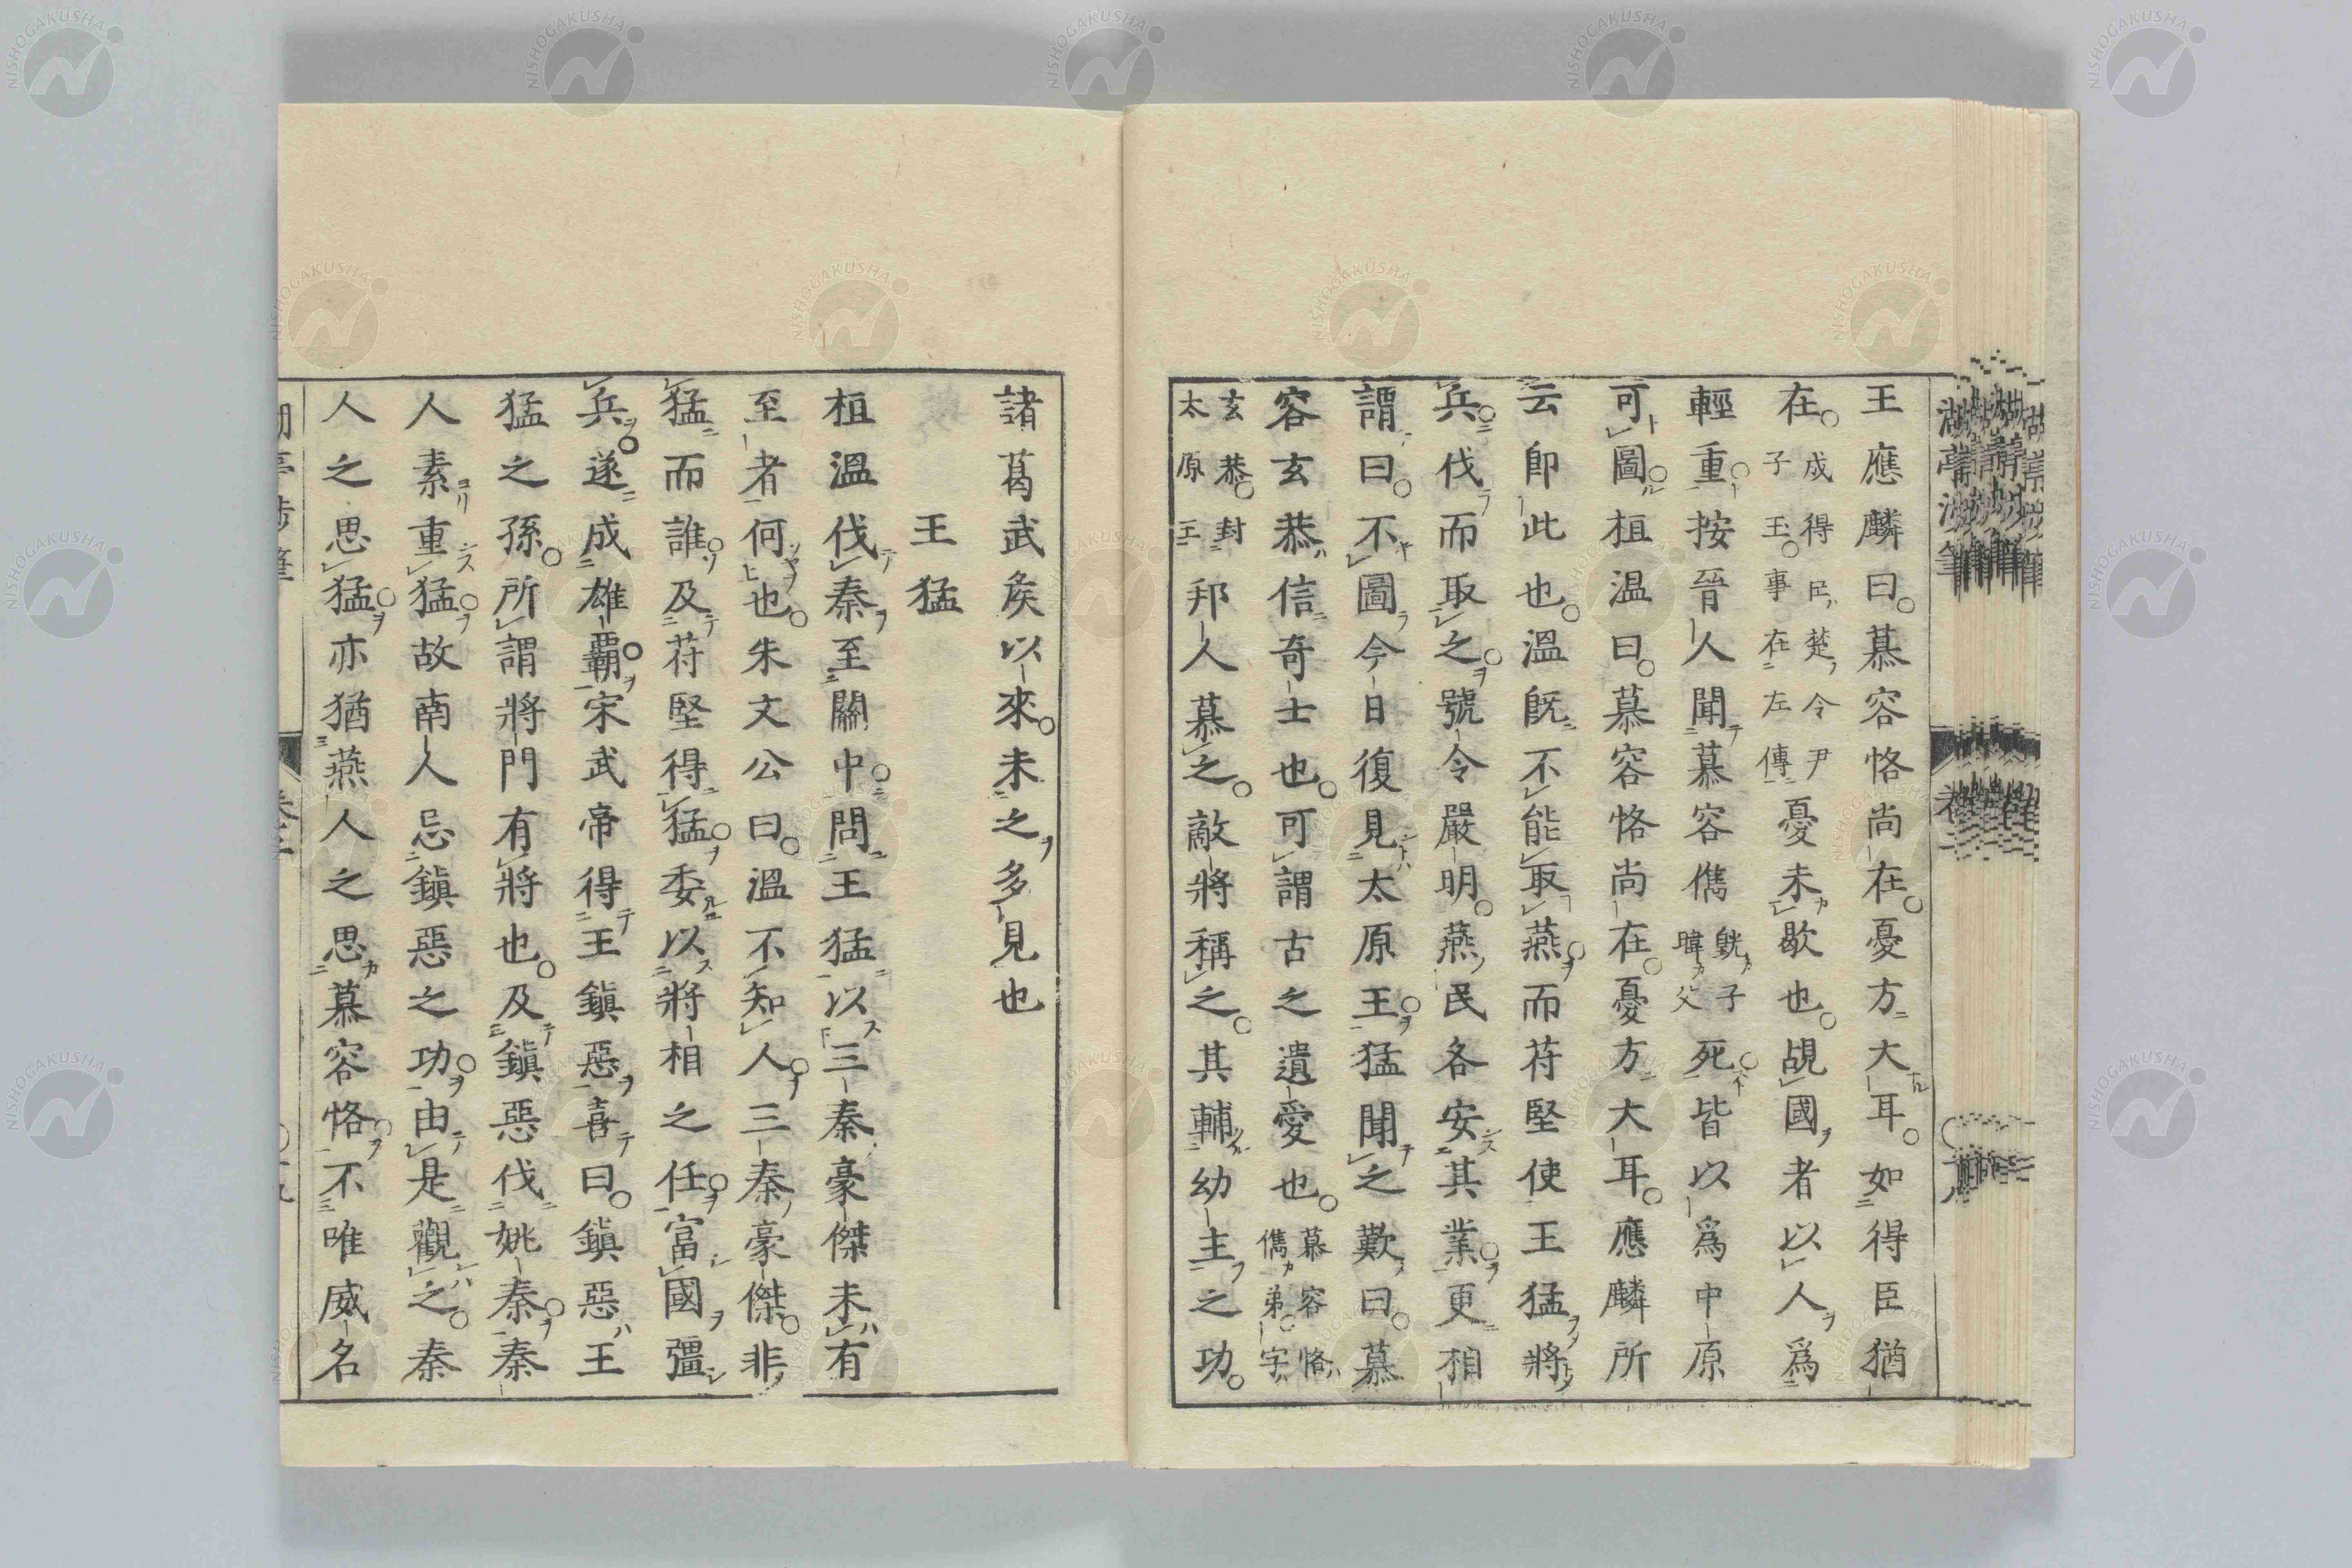 王應麟曰慕容恪尚在憂方大耳如得臣猶
在成得臣楚令尹子玉事在左傳憂未歇也覘國者以人爲
輕重按晉人聞慕容儁皝子暐父死皆以爲中原
可圖桓温曰慕容恪尚在憂方大耳應麟所
云卽此也溫旣不能取燕而苻堅使王猛將
兵伐而取之號令嚴明燕民各安其業更相
謂曰不圖今日復見太原王猛聞之歎曰慕
容玄恭信奇士也可謂古之遺愛也慕容恪儁弟字
玄恭封太原王邦人慕之敵將稱之其輔幼主之功
諸葛武矦以來未之多見也
王猛
桓溫伐秦至關中問王猛以三秦豪傑未有
至者何也朱文公曰溫不知人三秦豪傑非
猛而誰及苻堅得猛委以將相之任富國彊
兵遂成雄霸宋武帝得王鎭惡喜曰鎭惡王
猛之孫所謂將門有將也及鎭惡伐姚秦秦
人素重猛故南人忌鎭惡之功由是觀之秦
人之思猛亦猶燕人之思慕容恪不唯威名
NISHOGAKUSHA